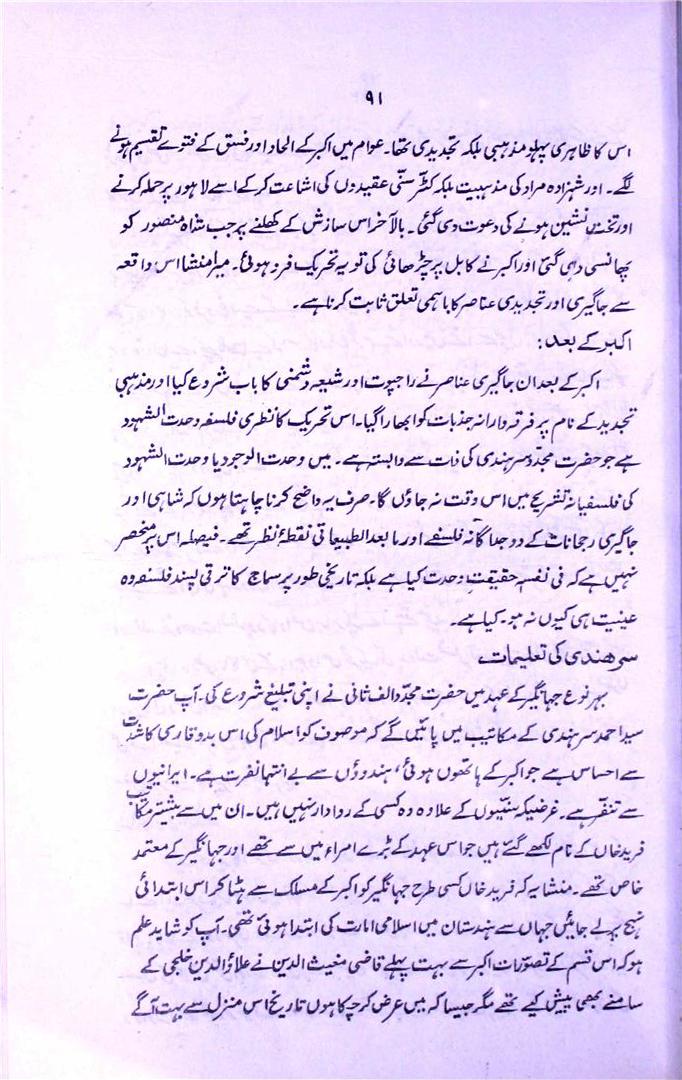 ۹۱
اس کا ظاہری پہلو مذہبی بلکہ تجدیدی تھا۔ عوام میں اکبر کے الحاد اور فسق کے فتوے تقسیم ہونے
لگے۔ اور شہزادہ مراد کی مذہبیت بلکہ کٹر سنّی عقیدوں کی اشاعت کر کے اسے لاہور پر حملہ کرنے
اور تخت نشین ہونے کی دعوت دی گئی۔ بالآخر اس سازش کے کھلنے پر جب شاہ منصور کو
پھانسی دی گئی اور اکبر نے کابل پر چڑھائی کی تو یہ تحریک فرد ہوئی۔ میرا منشا اس واقعہ
سے جاگیری اور تجدیدی عناصر کا باہمی تعلق ثابت کرنا ہے۔
اکبر کے بعد:
اکبر کے بعد ان جاگیری عناصر نے راجپوت اور شیعہ دشمنی کا باب شروع کیا اور مذہبی
تجدید کے نام پر فرقہ وارانہ جذبات کو ابھارا گیا۔ اس تحریک کا نظری فلسفہ وحدت الشہود
ہے جو حضرت مجدّد سرہندی کی ذات سے وابستہ ہے۔ میں وحدت الوجود یا وحدت الشہود
کی فلسفیانہ تشریح میں اس وقت نہ جاؤں گا۔ صرف یہ واضح کرنا چاہتا ہوں کہ شاہی اور
جاگیری رجحانات کے دو جداگانہ فلسفے اور مابعد الطبیعاتی نقطۂ نظر تھے۔ فیصلہ اس پر منحصر
نہیں ہے کہ فی نفسہٖ حقیقتِ وحدت کیا ہے بلکہ تاریخی طور پر سماج کا ترقی پسند فلسفہ وہ
عینیت ہی کیوں نہ ہو۔ کیا ہے۔
سرہندی کی تعلیمات
بہر نوع جہانگیر کے عہد میں حضرت مجدّد الف ثانی نے اپنی تبلیغ شروع کی۔ آپ حضرت
سید احمد سرہندی کے مکاتیب میں پائیں گے کہ موصوف کو اسلام کی اس بدوقاری کا شدت
سے احساس ہے جو اکبر کے ہاتھوں ہوئی، ہندوؤں سے بے انتہا نفرت ہے۔ ایرانیوں
سے تنفر ہے۔ غرضیکہ سنّیوں کے علاوہ وہ کسی کے روادار نہیں ہیں۔ ان میں سے بیشتر مکاتیب
فرید خاں کے نام لکھے گئے ہیں جو اس عہد کے بڑے امراء میں سے تھے اور جہانگیر کے معتمد
خاص تھے۔ منشا یہ کہ فرید خاں کسی طرح جہانگیر کو اکبر کے مسلک سے ہٹا کر اس ابتدائی
نہج پر لے جائیں جہاں سے ہندستان میں اسلامی امارت کی ابتدا ہوئی تھی۔ آپ کو شاید علم
ہو کہ اس قسم کے تصوّرات اکبر سے بہت پہلے قاضی مغیث الدین نے علاؤ الدین خلجی کے
سامنے بھی پیش کیے تھے مگر جیسا کہ میں عرض کر چکا ہوں تاریخ اس منزل سے بہت آگے